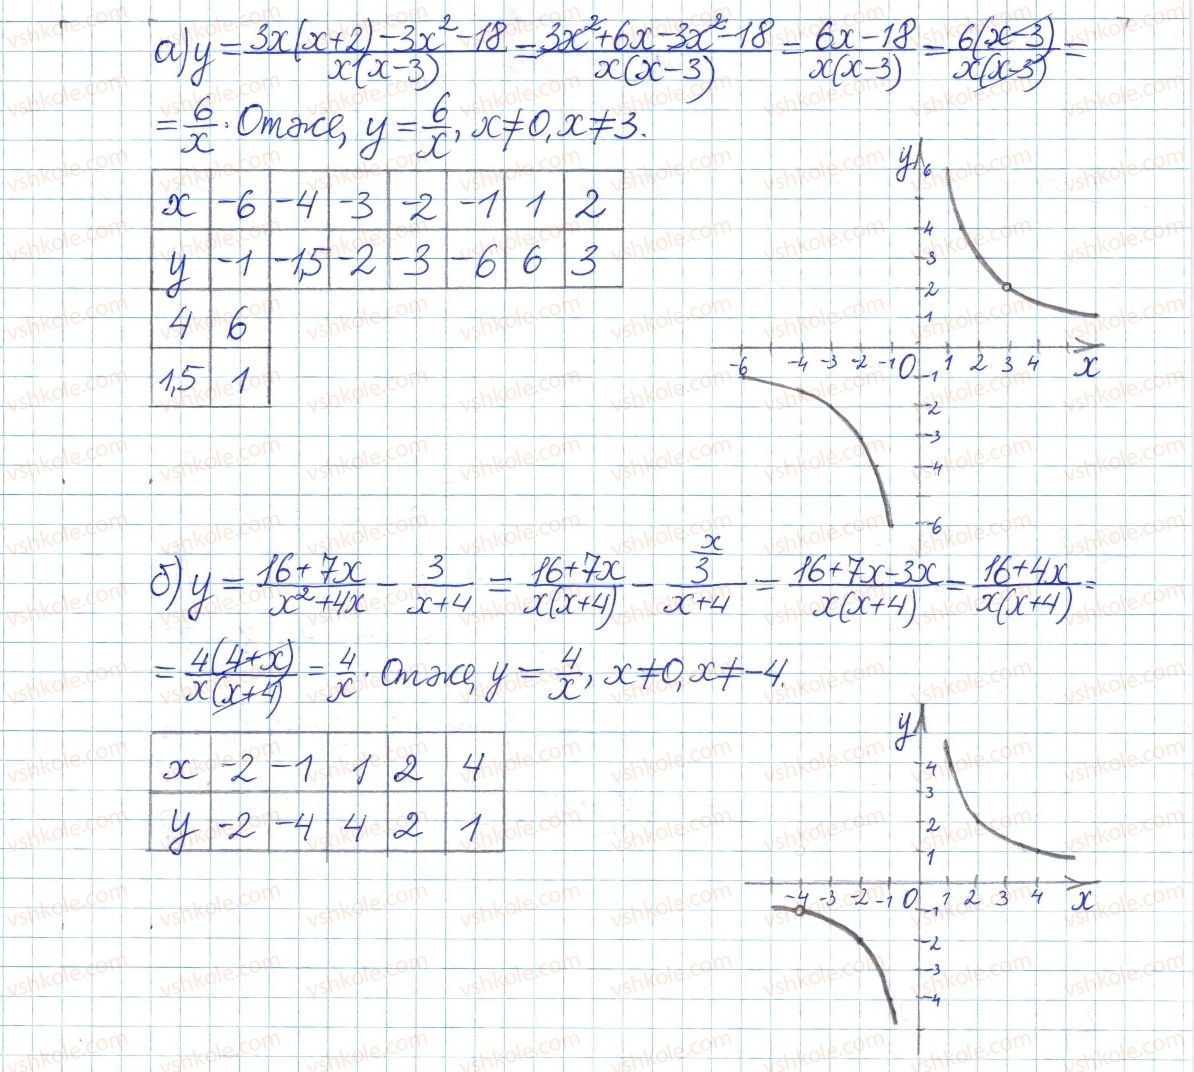 а) y = (3x(x+2)-3x²-18)/(x(x-3)) = (3x²+6x-3x²-18)/(x(x-3)) = (6x-18)/(x(x-3)) = (6(x-3))/(x(x-3)) =
= 6/x. Отже, y = 6/x, x≠0, x≠3.
x -6 -4 -3 -2 -1 1 2
y -1 -1,5 -2 -3 -6 6 3
4 6
1,5 1
y
6
4
3
2
1
-6 -4 -3 -2 -1 0 1 2 3 4 x
-1
-2
-3
-4
-6
б) y = (16+7x)/(x²+4x) - 3/(x+4) = (16+7x)/(x(x+4)) - x/3/(x+4) = (16+7x-3x)/(x(x+4)) = (16+4x)/(x(x+4)) =
= (4(4+x))/(x(x+4)) = 4/x. Отже, y = 4/x, x≠0, x≠-4.
x -2 -1 1 2 4
y -2 -4 4 2 1
y
4
3
2
1
-4 -3 -2 -1 0 1 2 3 4 x
-1
-2
-3
-4
vshkole.com